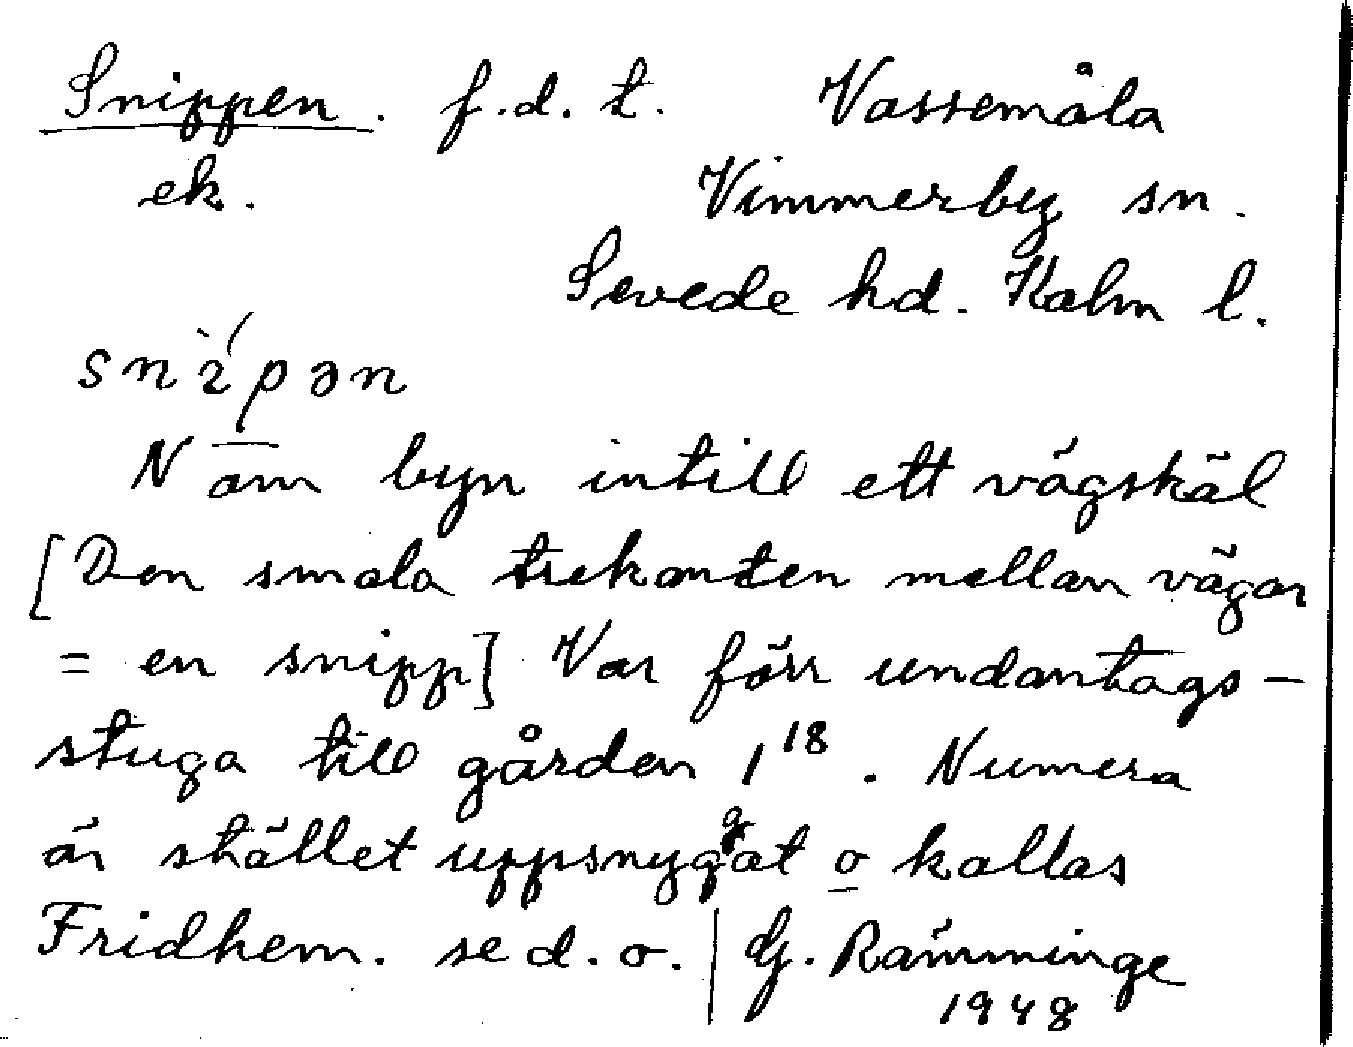 Snippen. f.d. t. Vassemåla
ek. Vimmerby sn.
Sevede hd. Kalm l.
snìṕən
N om byn intill ett vägskäl
[Den smala trekanten mellan vägar
= en snipp] Var förr undantags-
stuga till gården 1¹⁸. Numera
är stället uppsnyggat o kallas
Fridhem. se d. o. | G. Rämminge
1948